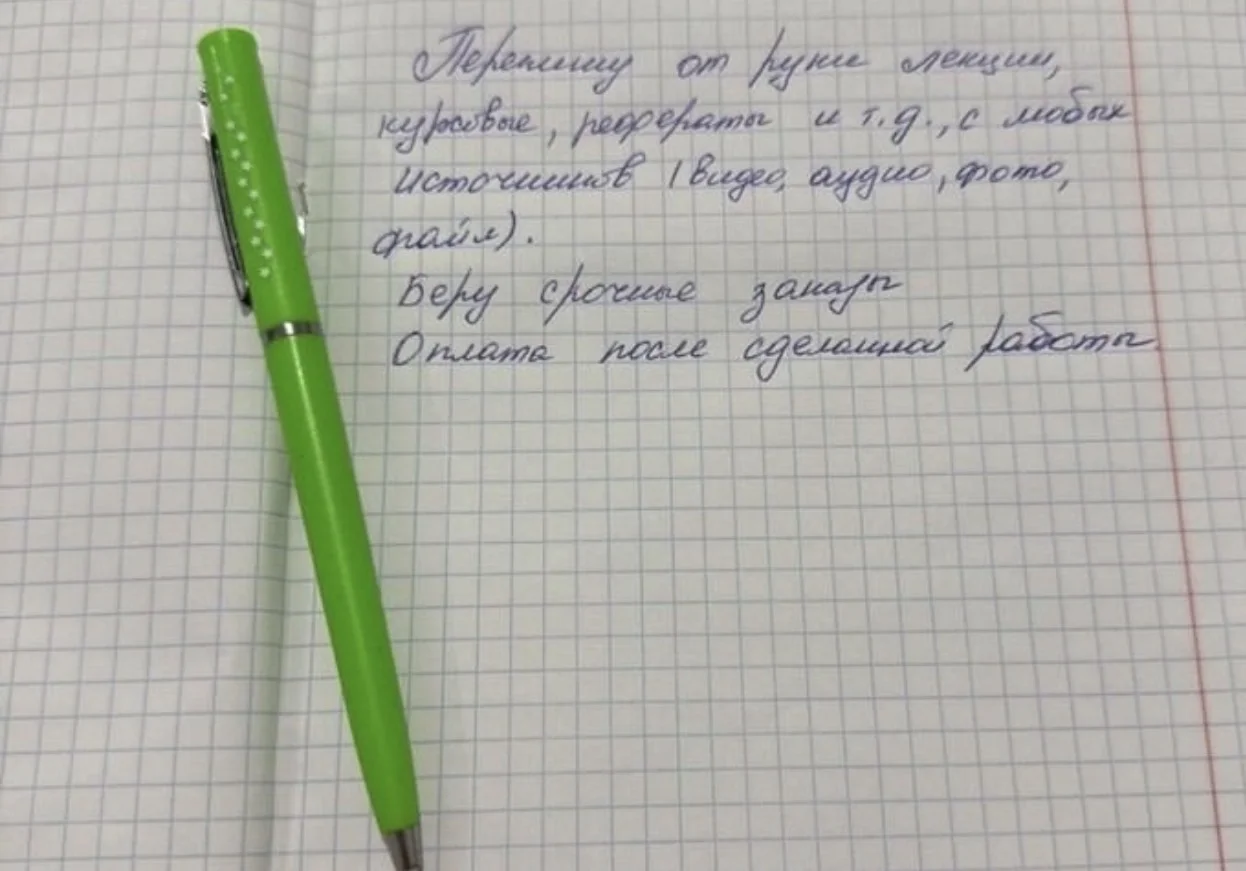 Перепишу от руки лекции,
курсовые, рефераты и т.д., с любых
источников (видео, аудио, фото,
файл).
Беру срочные заказы
Оплата после сделанной работы